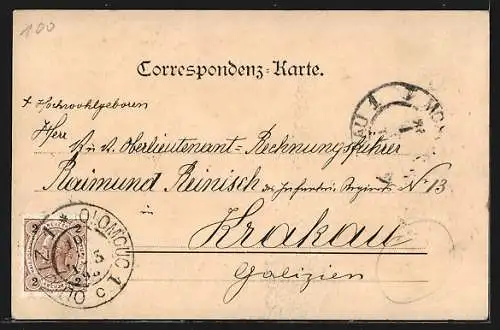 100
Correspondenz-Karte.
Hochwohlgeboren
Herr
K. u. K. Oberlieutenant-Rechnungsführer
Raimund Reinisch des Infanterie Regiments No 13
in
Krakau
Galizien
OLOMOUC 1
2 2
2 2